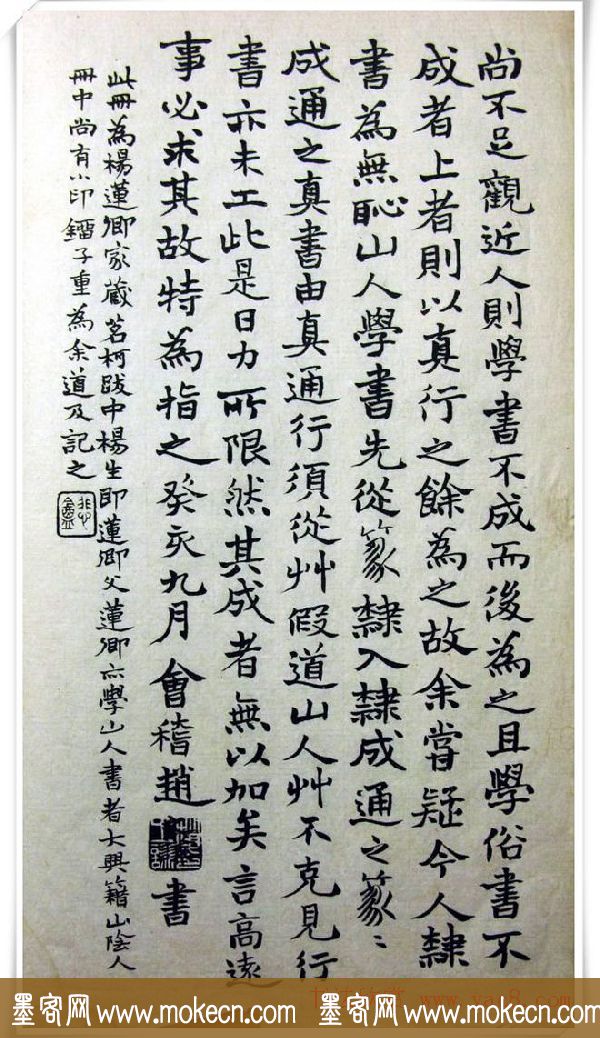 尚不足觀近人則學書不成而後為之且學俗書不
成者上者則以真行之餘為之故余嘗疑今人隸
書為無恥山人學書先從篆隸入隸成通之篆〻
成通之真書由真通行須從艸假道山人艸不克見行
書亦未工此是日力所限然其成者無以加矣言高遠
事必求其故特為指之癸亥九月會稽趙書
此冊為楊蓮卿家藏茗柯跋中楊生即蓮卿父蓮卿亦學山人書者大興籍山陰人
冊中尚有小印鐳子重為余道及記之
墨客网 www.mokecn.com 墨客网 www.mokecn.com